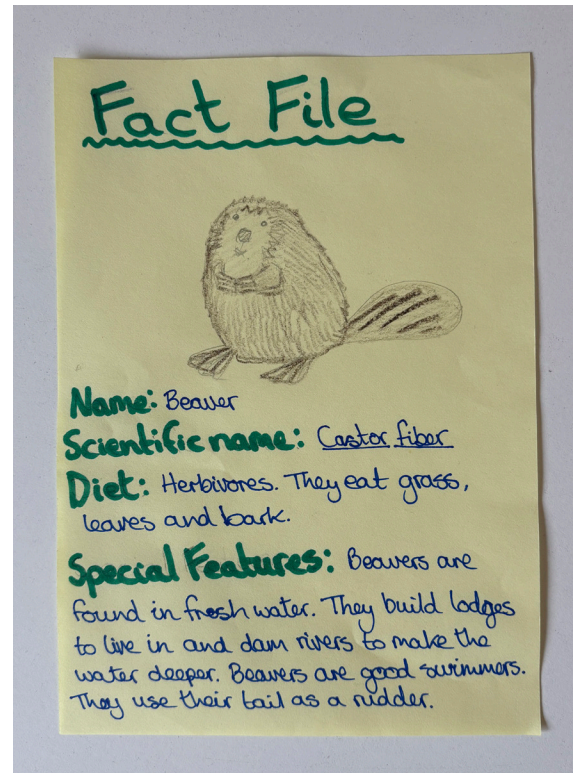 Fact File
Name: Beaver
Scientific name: Castor fiber
Diet: Herbivores. They eat grass,
leaves and bark.
Special Features: Beavers are
found in fresh water. They build lodges
to live in and dam rivers to make the
water deeper. Beavers are good swimmers.
They use their tail as a rudder.